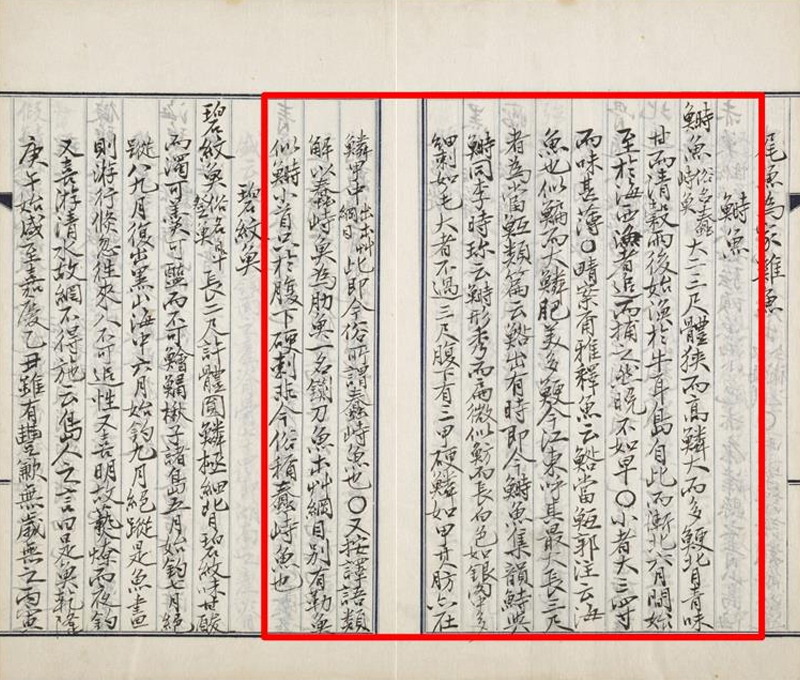 尾魚為家雞魚
鰣魚
鰣魚俗名蠢峙魚大二三尺體狹而高鱗大而多鯁背青味
甘而清穀雨後始漁於牛耳島自此而漸北六月間始
至於海西漁者追而捕之然晩不如早〇小者大三四寸
而味甚薄〇晴案爾雅釋魚云鮥當魱郭注云海
魚也似鯿而大鱗肥美多鯁今江東呼其最大長三尺
者為當魱類篇云鮥出有時即今鰣魚集韻鰣與
鰣同李時珍云鰣形秀而扁微似魴而長白色如銀肉中多
細刺如毛大者不過三尺腹下有三甲硬鱗如甲其肪亦在
鱗甲中出本艸綱目此即今俗所謂蠢峙魚也〇又按譯語類
解以蠢峙魚為肋魚一名鐵刀魚本艸綱目別有勒魚
似鰣小首只於腹下硬刺非今俗稱蠢峙魚也
碧紋魚
碧紋魚俗名皐登魚長二尺許體圓鱗極細背碧紋味甘酸
而濁可羹可醢而不可鱠鱐楸子諸島五月始釣七月絕
蹤八九月復出黑山海中六月始釣九月絕蹤是魚晝
則游行倏忽往來人不可追性又喜明故爇燎而夜釣
又喜游清水故網不得施云島人之言曰是魚乾隆
庚午始盛至嘉慶乙丑雖有豐歉無歲無之丙寅